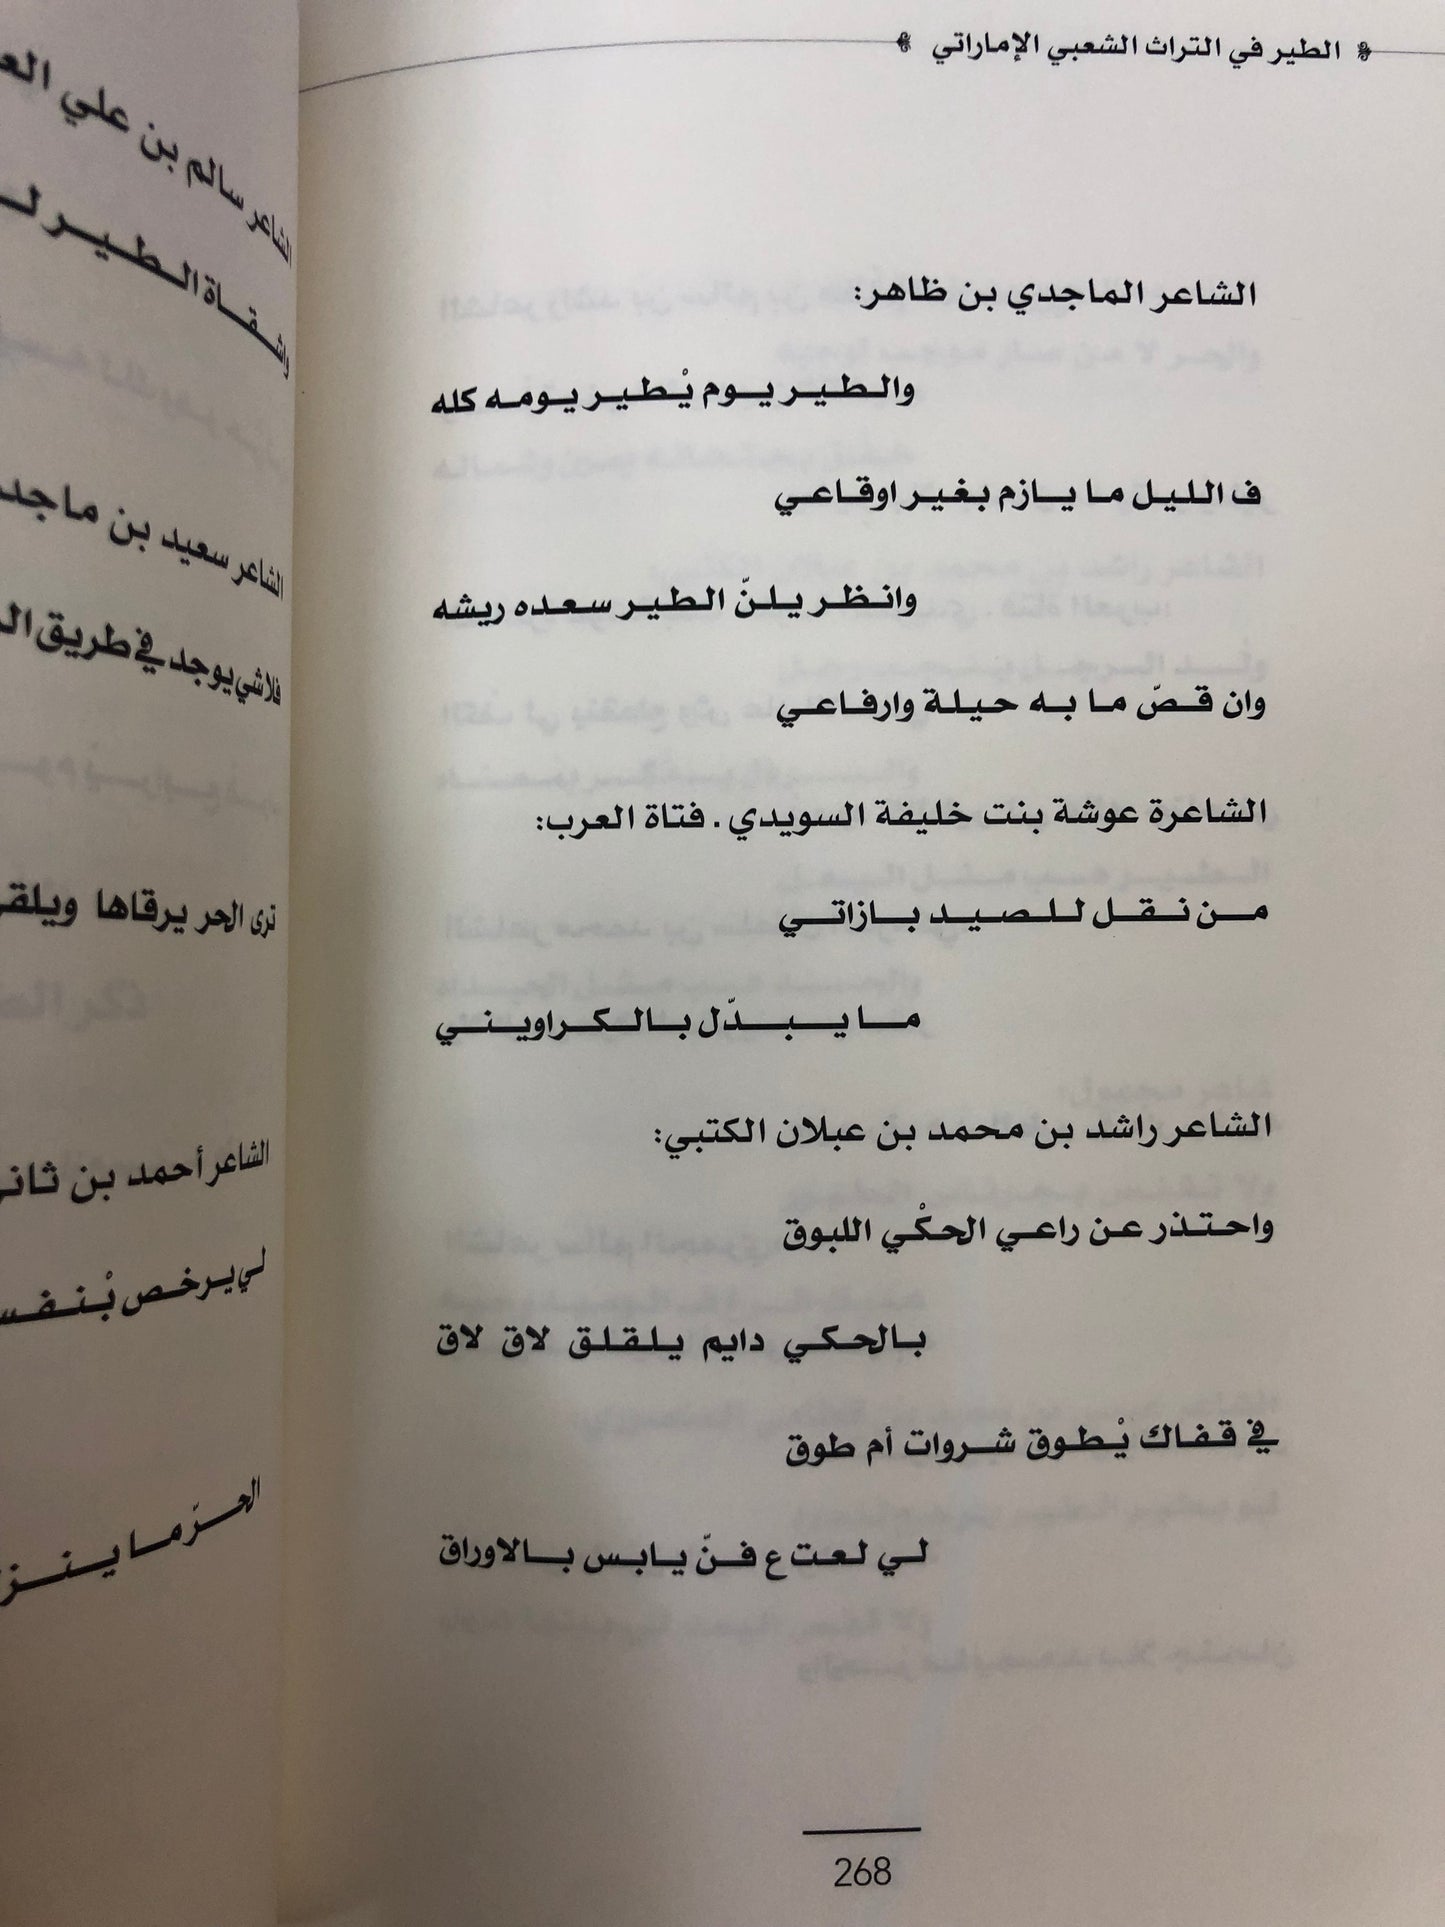 الطير في التراث الشعبي الإماراتي
الشاعر الماجدي بن ظاهر:
والطير يوم يْطير يومه كله
ف الليل ما يازم بغير اوقاعي
وانظر يلنّ الطير سعده ريشه
وان قصّ ما به حيلة وارفاعي
الشاعرة عوشة بنت خليفة السويدي . فتاة العرب:
من نقل للصيد بازاتي
ما يبدّل بالكراويني
الشاعر راشد بن محمد بن عبلان الكتبي:
واحتذر عن راعي الحكْي اللبوق
بالحكي دايم يلقلق لاق لاق
في قفاك يْطوق شروات أم طوق
لي لعت ع فنّ يابس بالاوراق
268
الشاعر سالم بن علي
واشقاة الطير
الشاعر سعيد بن ماجد
فلاشي يوجد في طريق
ترى الحر يرقاها ويلقى
الشاعر أحمد بن ثاني
لي يرخص
الحرّ ما